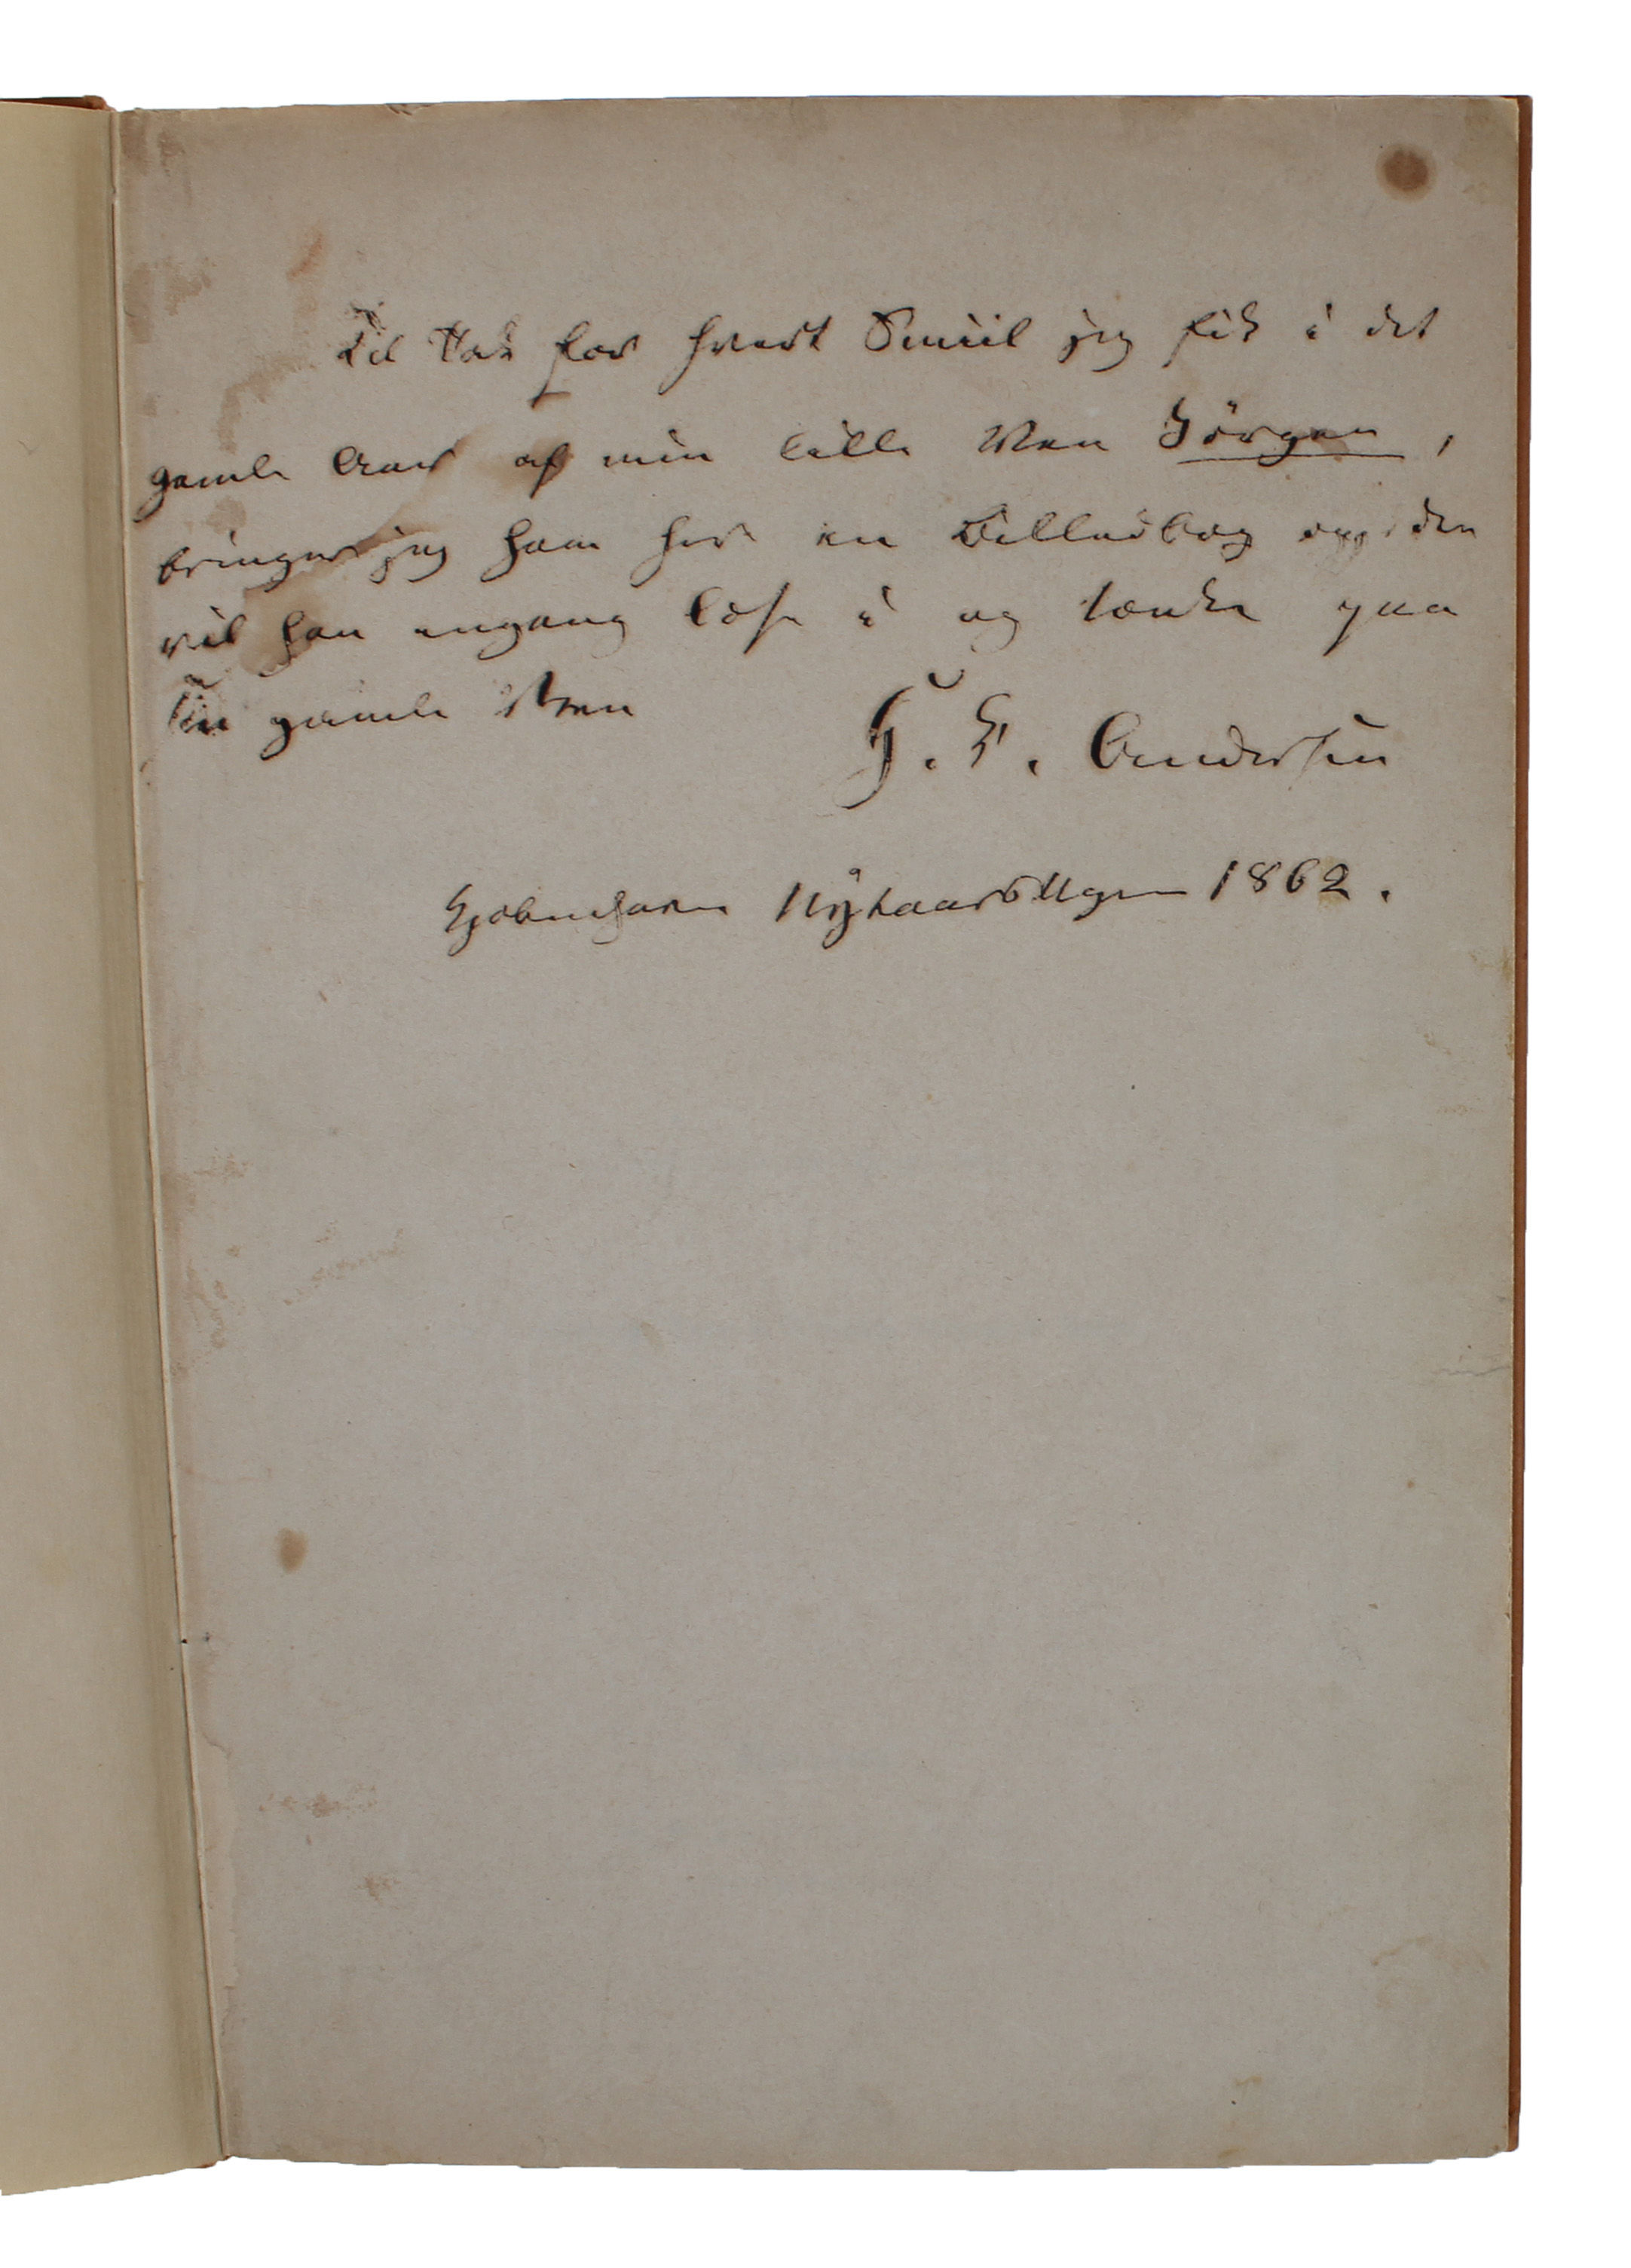 Til Tak for hvert Smiil jeg fik i det
gamle Aar af min lille Ven Jörgen,
bringer jeg ham her en Billedbog og den
vil han engang læse i og tænke paa
sin gamle Ven
H. C. Andersen
Kjøbenhavn Nytaarsdagen 1862.